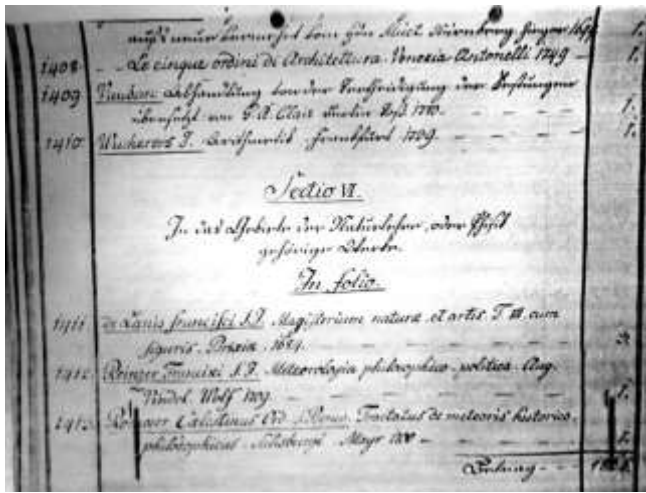 aufs neue vermehrt von Nürnberg 1699 1.
1408 Le cinque ordini di Architettura. Venezia Antonelli 1749 — 1.
1409 Vauban Abhandlung von der Vertheidigung der Festungen
übersetzt von G. A. Clair Berlin 1770. — — — 1.
1410 Wucherers J. Arithmetik. Frankfurt 1709. — — — 1.
Sectio VI.
In das Gebiete der Naturlehre, oder Physik
gehörige Werke.
In folio.
1411 de Lanis francisci S.J. Magisterium naturæ et artis T. III. cum
figuris. Brixiæ. 1684. — — — 3.
1412 Reinzer Francisci S.J. Meteorologia philosophico-politica Aug.
Vindel. Wolf 1709. — — — 1.
1413 Calistinus Ord. Tractatus de meteoris historico-
philosophicus. Salisburgi. Mayr — — — 1.